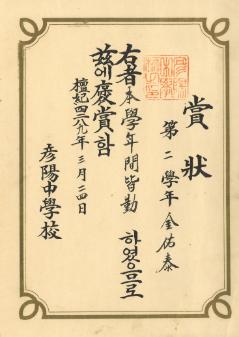 賞狀
第二學年 金佑泰
右者本學年間皆勤 하였음으로
玆에 褒賞함
檀紀四二八九年 三月 二四日
彦陽中學校